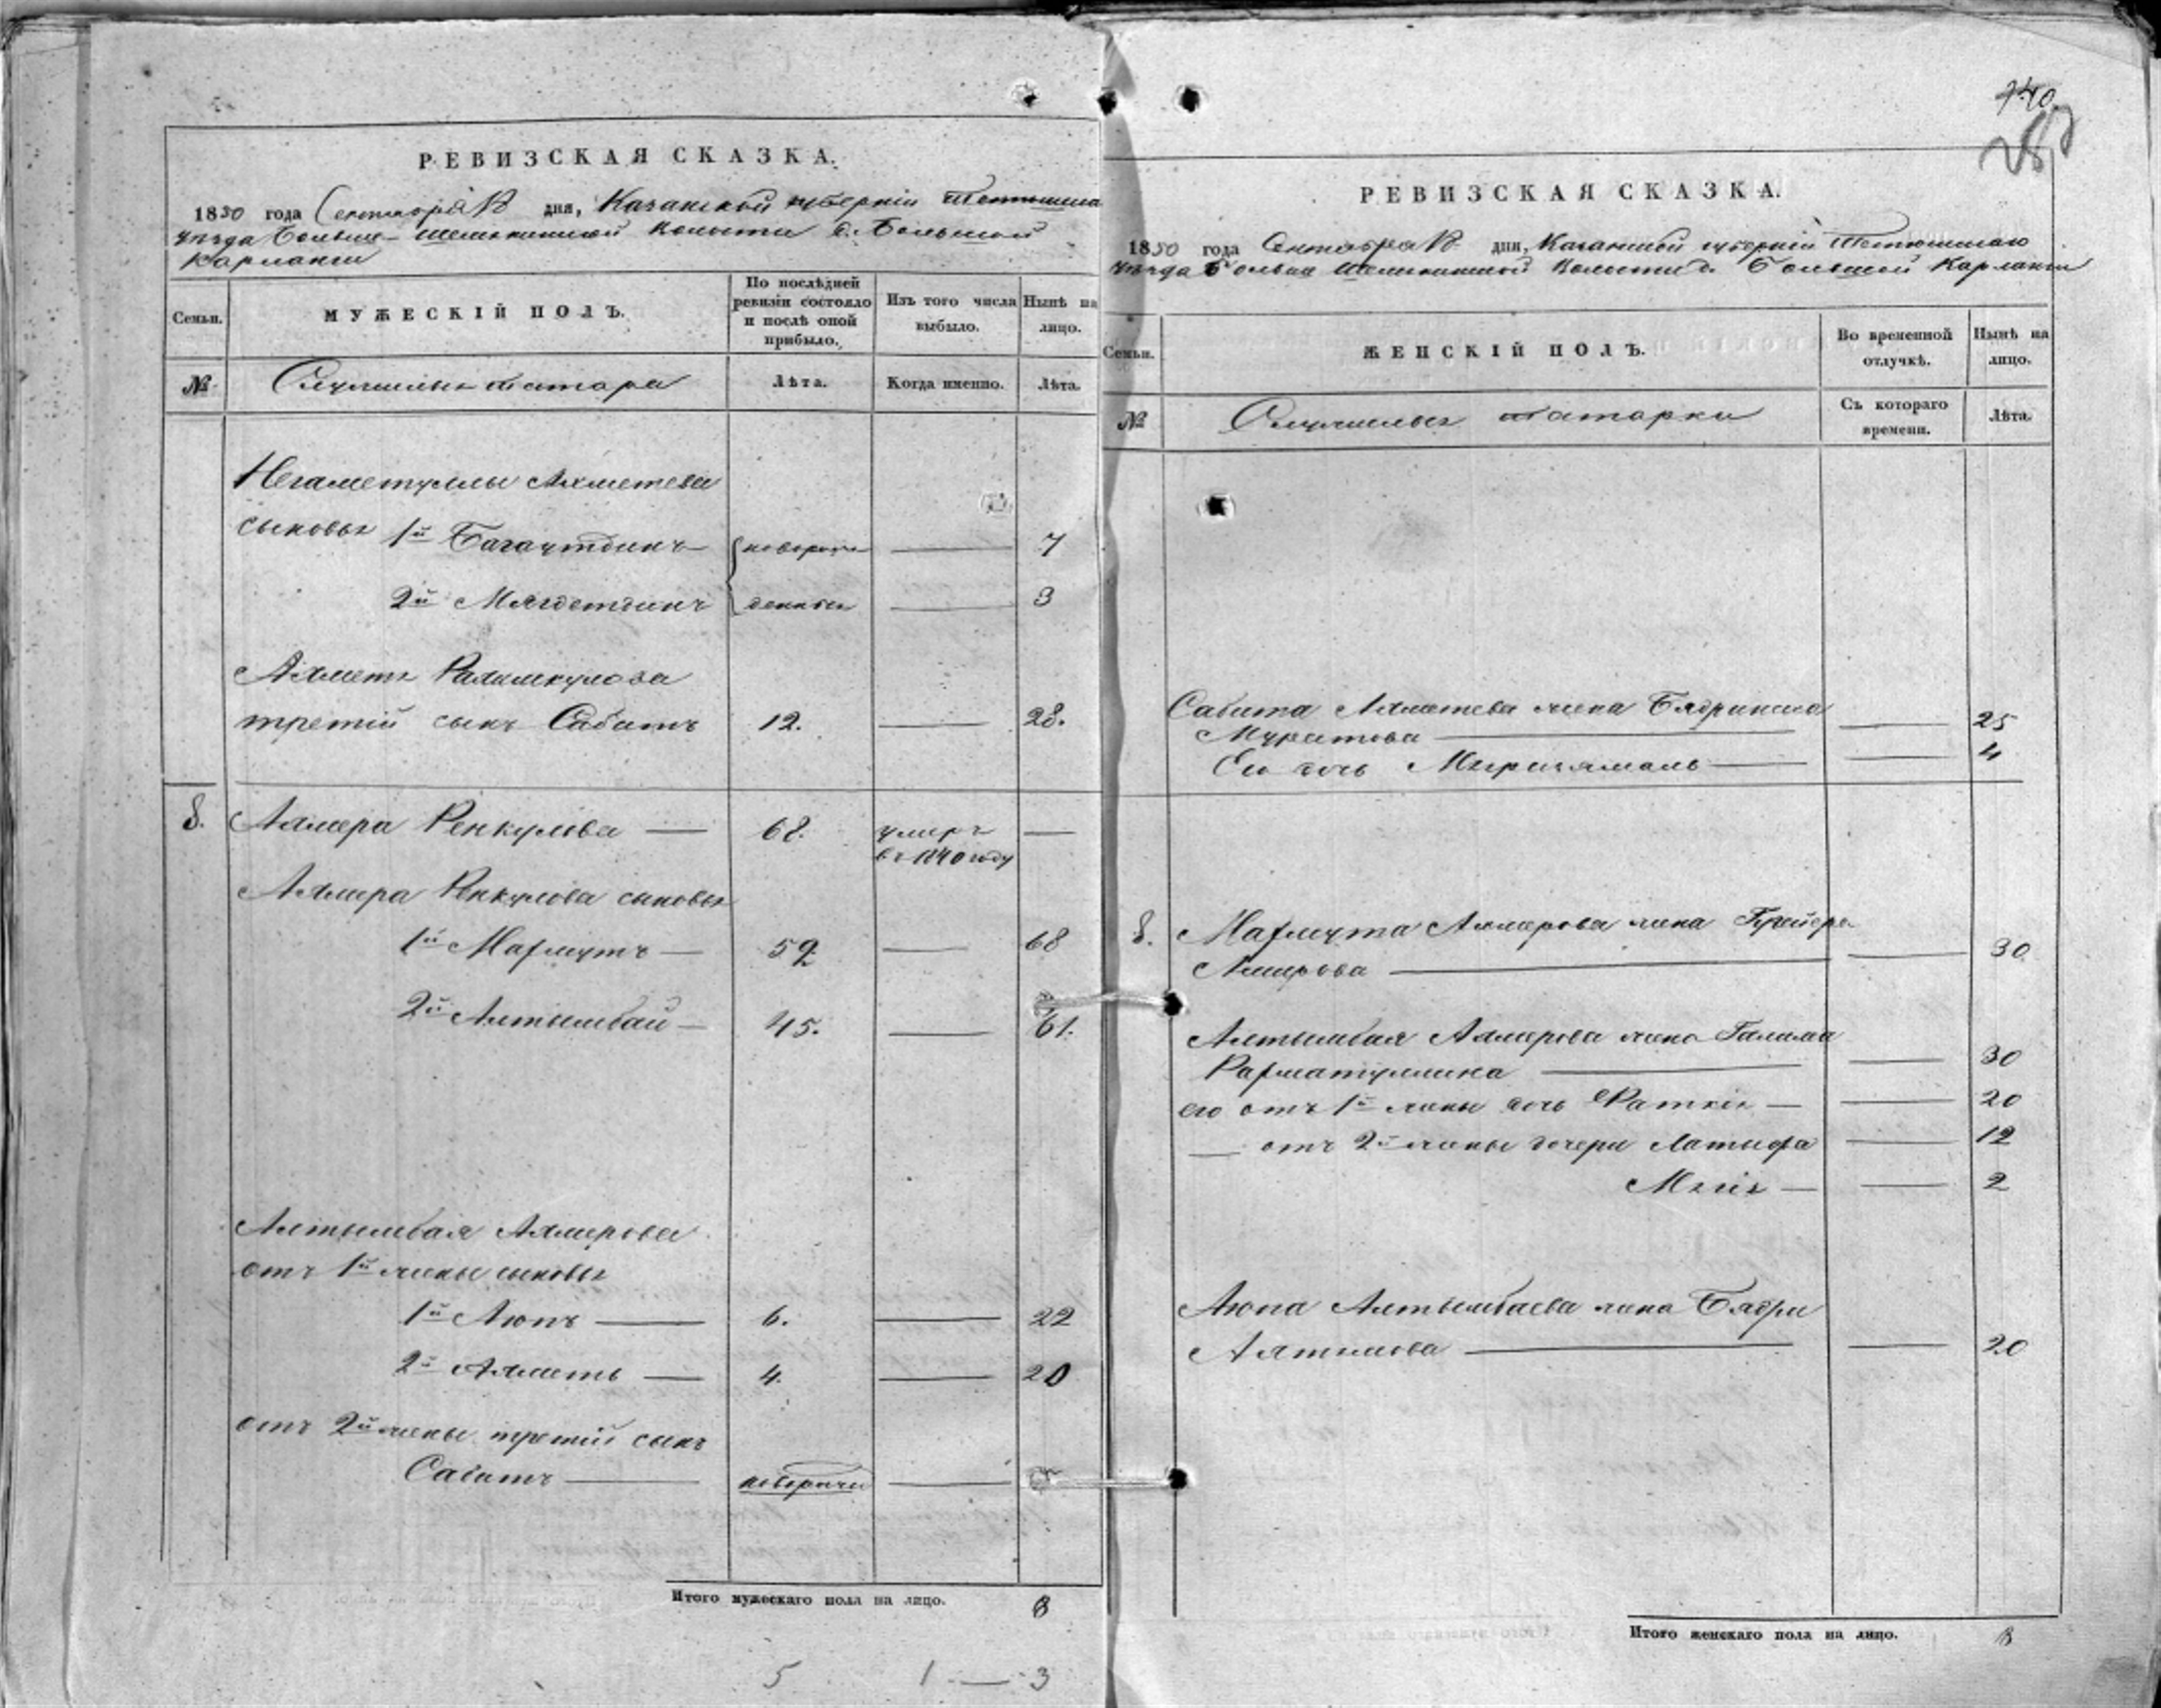 740
РЕВИЗСКАЯ СКАЗКА.
1850 года Сентября дня, Казанской губерніи Тетюшска
уѣзда Больше-Шемякинской волости д. Большой
Карланги
Семьи.
МУЖЕСКІЙ ПОЛЪ.
По послѣдней ревизіи состояло и послѣ оной прибыло.
Изъ того числа выбыло.
Нынѣ на лицо.
№
Служилыхъ татаръ
Лѣта.
Когда именно.
Лѣта.
Негаметуллы Ахметева
сыновья 1й Багаутдинъ новорож — 7
2й Мягдетдинъ денные — 3
Ахметъ Рахимкулова
третій сынъ Сабитъ 12. — 28.
8. Ахмера Ренкулова — 68. умеръ —
въ 1840 году
Ахмера Ренкулова сыновья
1й Махмутъ — 52 — 68
2й Алтымбай — 45. — 61.
Алтымбая Ахмерова
отъ 1й жены сыновья
1й Аюпъ — 6. — 22
2й Ахметъ — 4. — 20
отъ 2й жены третій сынъ
Сабитъ — новорож —
Итого мужескаго пола на лицо. 8
5 1 — 3
РЕВИЗСКАЯ СКАЗКА.
1850 года Сентября дня, Казанской губерніи Тетюшскаго
уѣзда Больше Шемякинской волости д. Большой Карланги
Семьи.
ЖЕНСКІЙ ПОЛЪ.
Во временной отлучкѣ.
Нынѣ на лицо.
№
Служилыхъ татарки
Съ котораго времени.
Лѣта.
Сабита Ахметева жена Бядриниса
Муратова — — 25
Его дочь Мирзиямаль — — 4
8. Махмута Ахмерова жена
Амирова — — 30
Алтымбая Ахмерова жена Галима
Рахматуллина — — 30
его отъ 1й жены дочь — — 20
— отъ 2й жены дочери Латыфа — 12
— — 2
Аюпа Алтымбаева жена Бядри
— — 20
Итого женскаго пола на лицо. 8